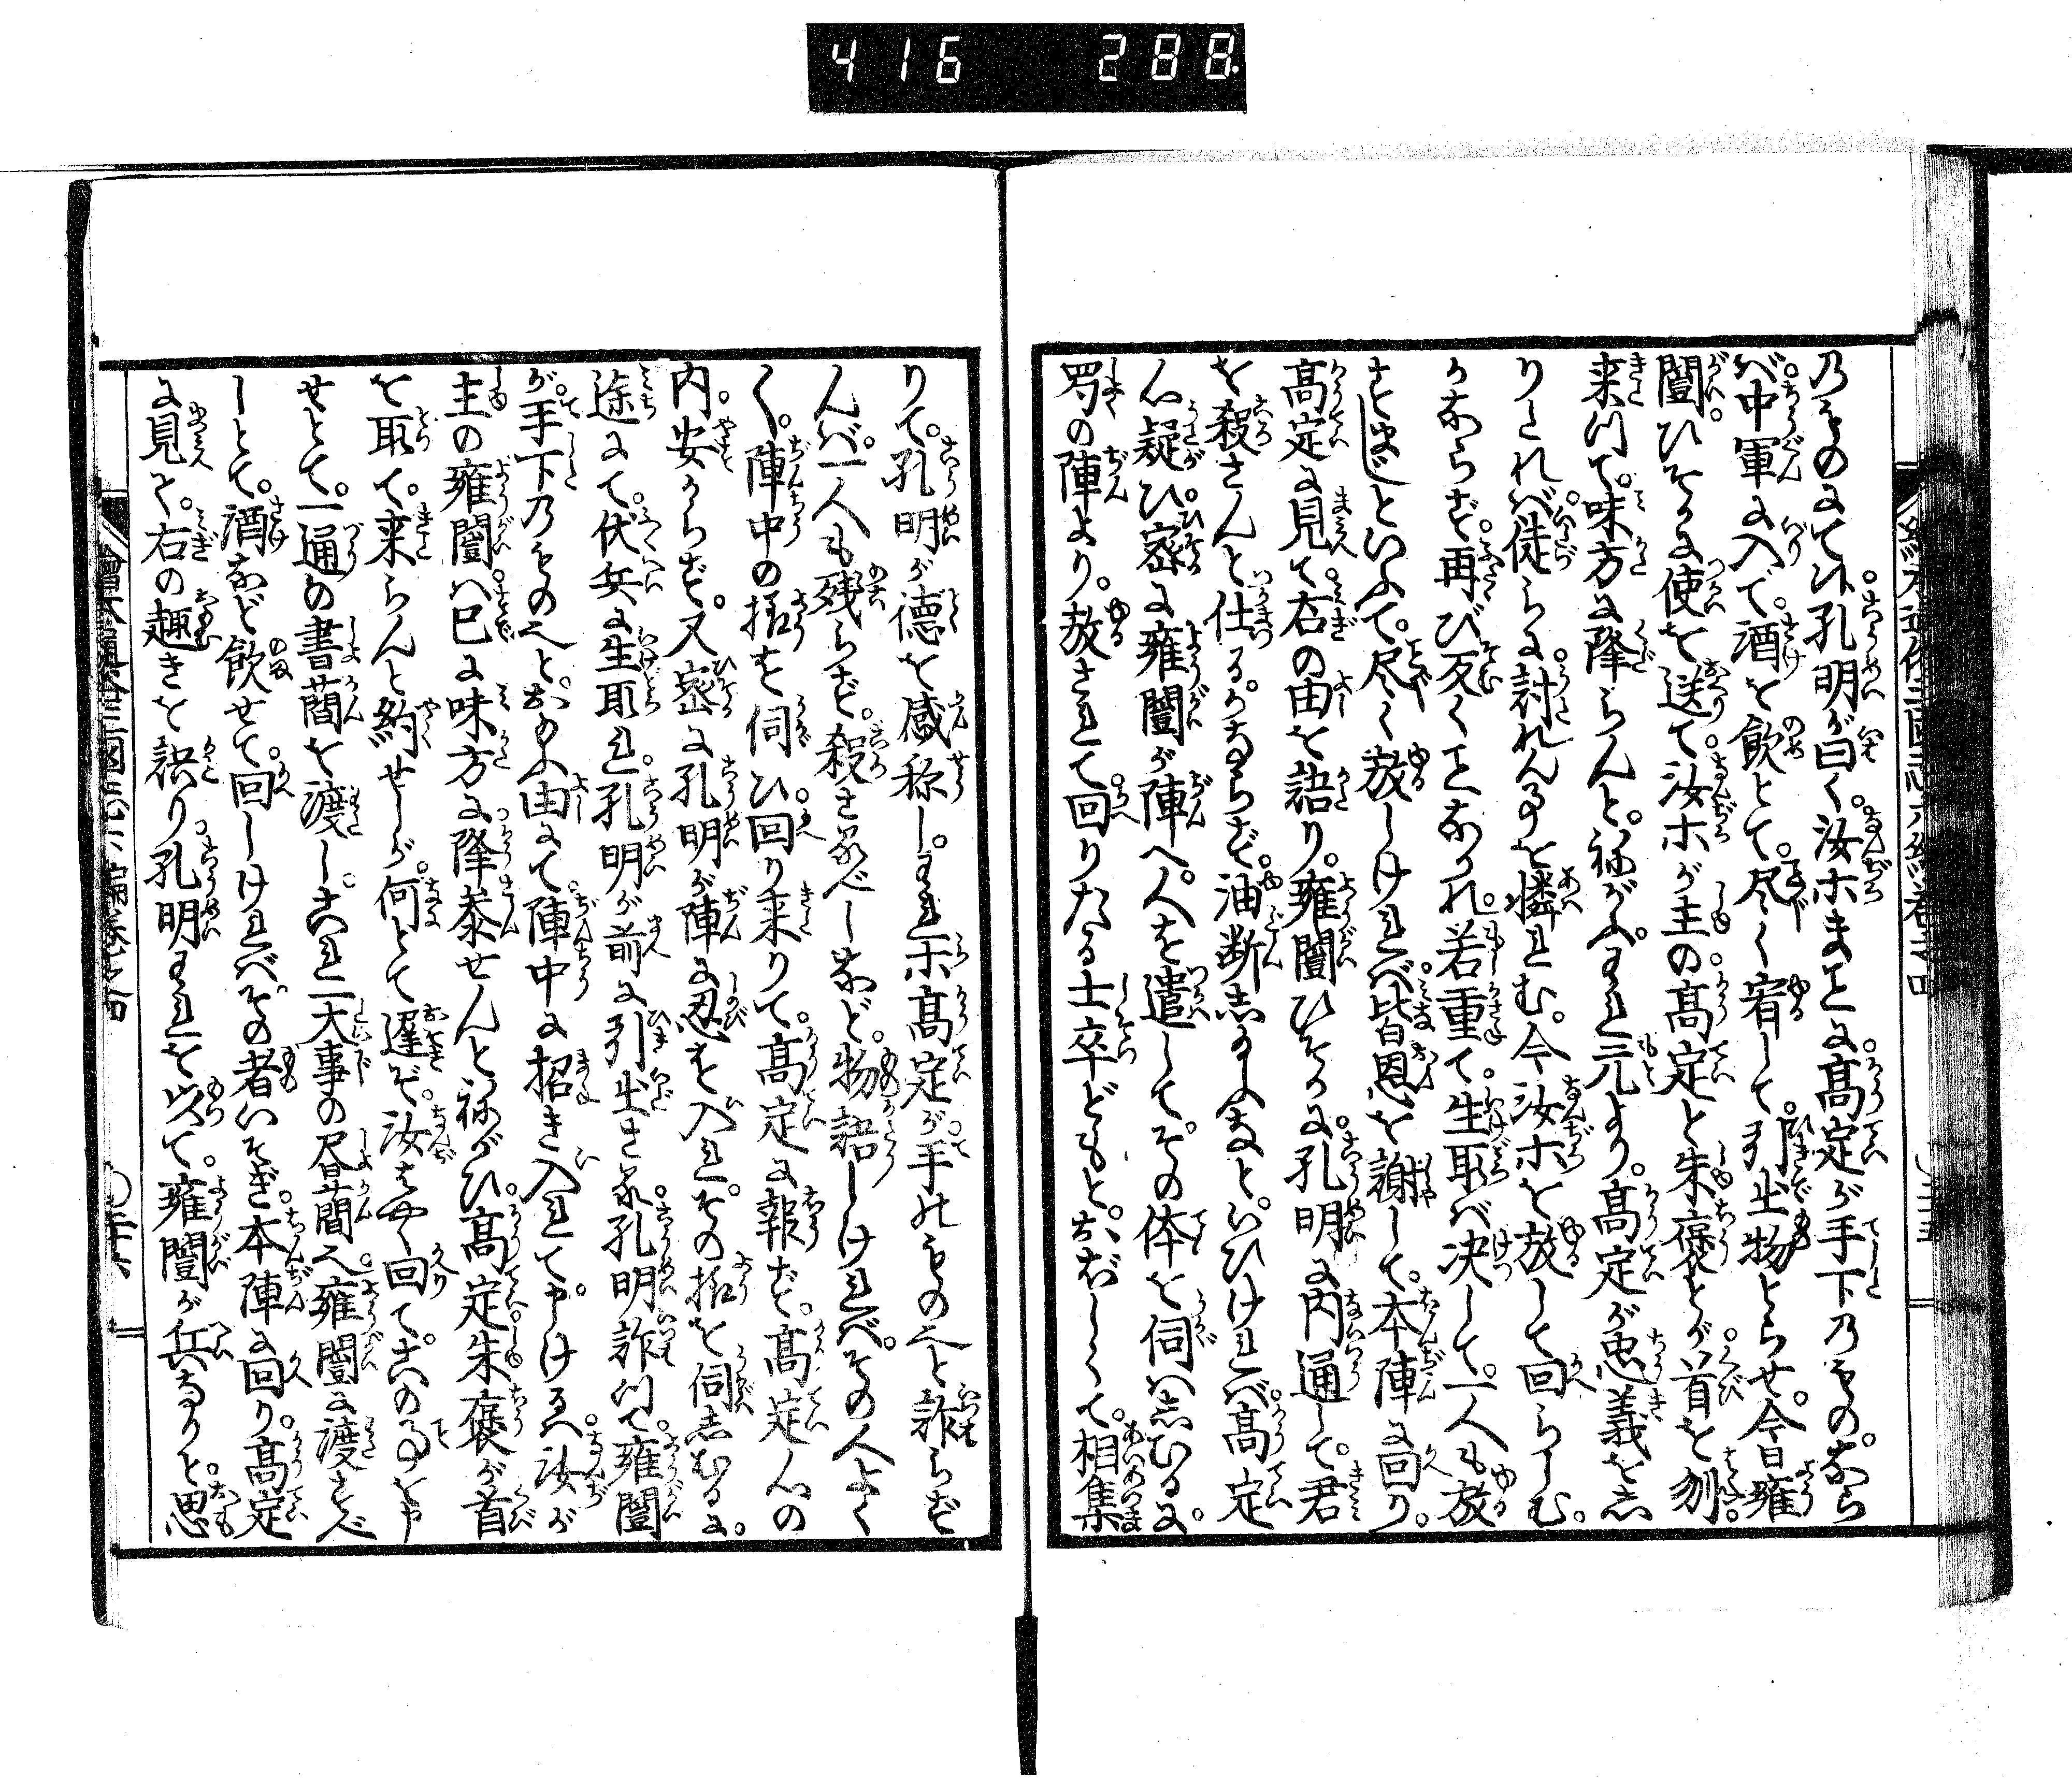 416 288
乃ものにて候孔明が曰く汝ホまことに高定が手下乃ものなら
バ中軍に入て酒を飲とて尽く宥して引出物とらせ今日雍
闓ひそかに使を送て汝ホが主の高定と朱褒とが首を刎
来つて味方に降らんと祢がふわれ元より高定が忠義を志
りされバ徒らに討れんるを憐れむ今汝ホを放して回らしむ
かならず再び反くことなかれ若重て生取バ决して一人も放
すまじといふて尽く放しけれバ皆恩を謝して本陣に回り
高定に見て右の由を語り雍闓ひそかに孔明に内通して君
を殺さんと仕るかならず油断志給ふなといひけれバ高定
心疑ひ密に雍闓が陣へ人を遣してその体を伺ハ志むるに
蜀の陣より放されて回りたる士卒どもとおぼしくて相集
りて孔明が徳を感称しわれホ高定が手のものと詐らず
んバ一人も残らず殺さるべしなど物語しけれバその人よく
く陣中の様を伺ひ回り来りて高定に報ず高定心の
内安からず又密に孔明が陣に忍を入れその様を伺志むるに
途にて伏兵に生取れ孔明が前に引出さる孔明詐つて雍闓
が手下乃ものと おもふ由にて陣中に招き入れて申けるハ汝が
主の雍闓ハ已に味方に降参せんと祢がひ高定朱褒が首
を取て来らんと約せしが何とて遅ぞ汝はやく回てこのるを申
せとて一通の書簡を渡しこれ一大事の書簡也雍闓に渡すべ
しとて酒など飲せて回しけれバその者いそぎ本陣に回り高定
に見て右の趣きを語り孔明われを以て雍闓が兵なりと思